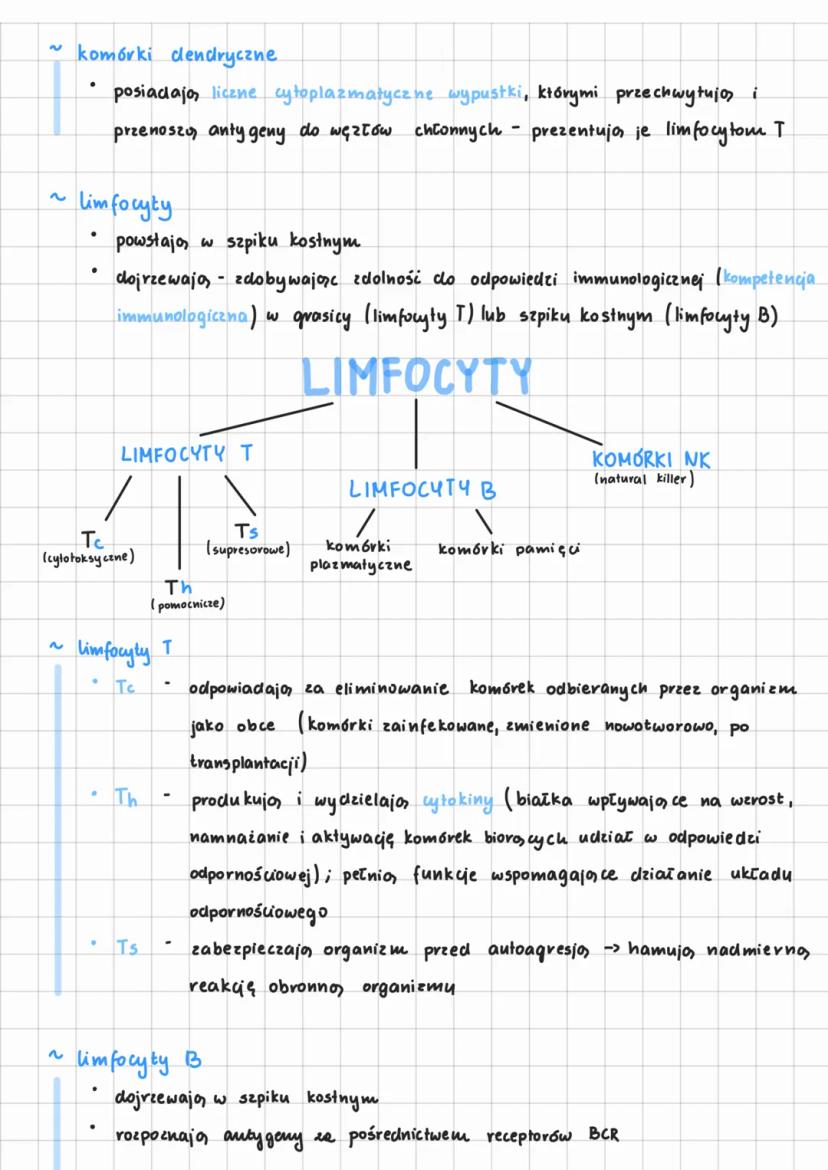 ~ komórki dendryczne
• posiadają liczne cytoplazmatyczne wypustki, którymi przechwytują i
przenoszą antygeny do węzłów chłonnych - prezentują je limfocytom T
~ limfocyty
• powstają w szpiku kostnym
• dojrzewają - zdobywając zdolność do odpowiedzi immunologicznej (kompetencja
immunologiczna) w grasicy (limfocyty T) lub szpiku kostnym (limfocyty B)
LIMFOCYTY
LIMFOCYTY T
KOMÓRKI NK
(natural killer)
LIMFOCYTY B
Tc
(cytotoksyczne)
Th
(pomocnicze)
Ts
(supresorowe)
komórki
plazmatyczne
komórki pamięci
~ limfocyty T
• Tc - odpowiadają za eliminowanie komórek odbieranych przez organizm
jako obce (komórki zainfekowane, zmienione nowotworowo, po
transplantacji)
• Th - produkują i wydzielają cytokiny (białka wpływające na wzrost,
namnażanie i aktywację komórek biorących udział w odpowiedzi
odpornościowej); pełnią funkcje wspomagające działanie układu
odpornościowego
• Ts - zabezpieczają organizm przed autoagresją -> hamują nadmierną
reakcję obronną organizmu
~ limfocyty B
• dojrzewają w szpiku kostnym
• rozpoznają antygeny za pośrednictwem receptorów BCR